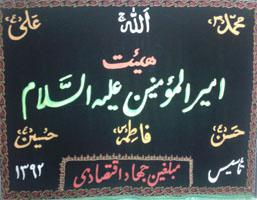 محمد الله علی
هیئت
امیرالمؤمنین علیه السلام
حسن فاطمه حسین
تاسیس مبلغین جهاد اقتصادی ۱۳۹۲